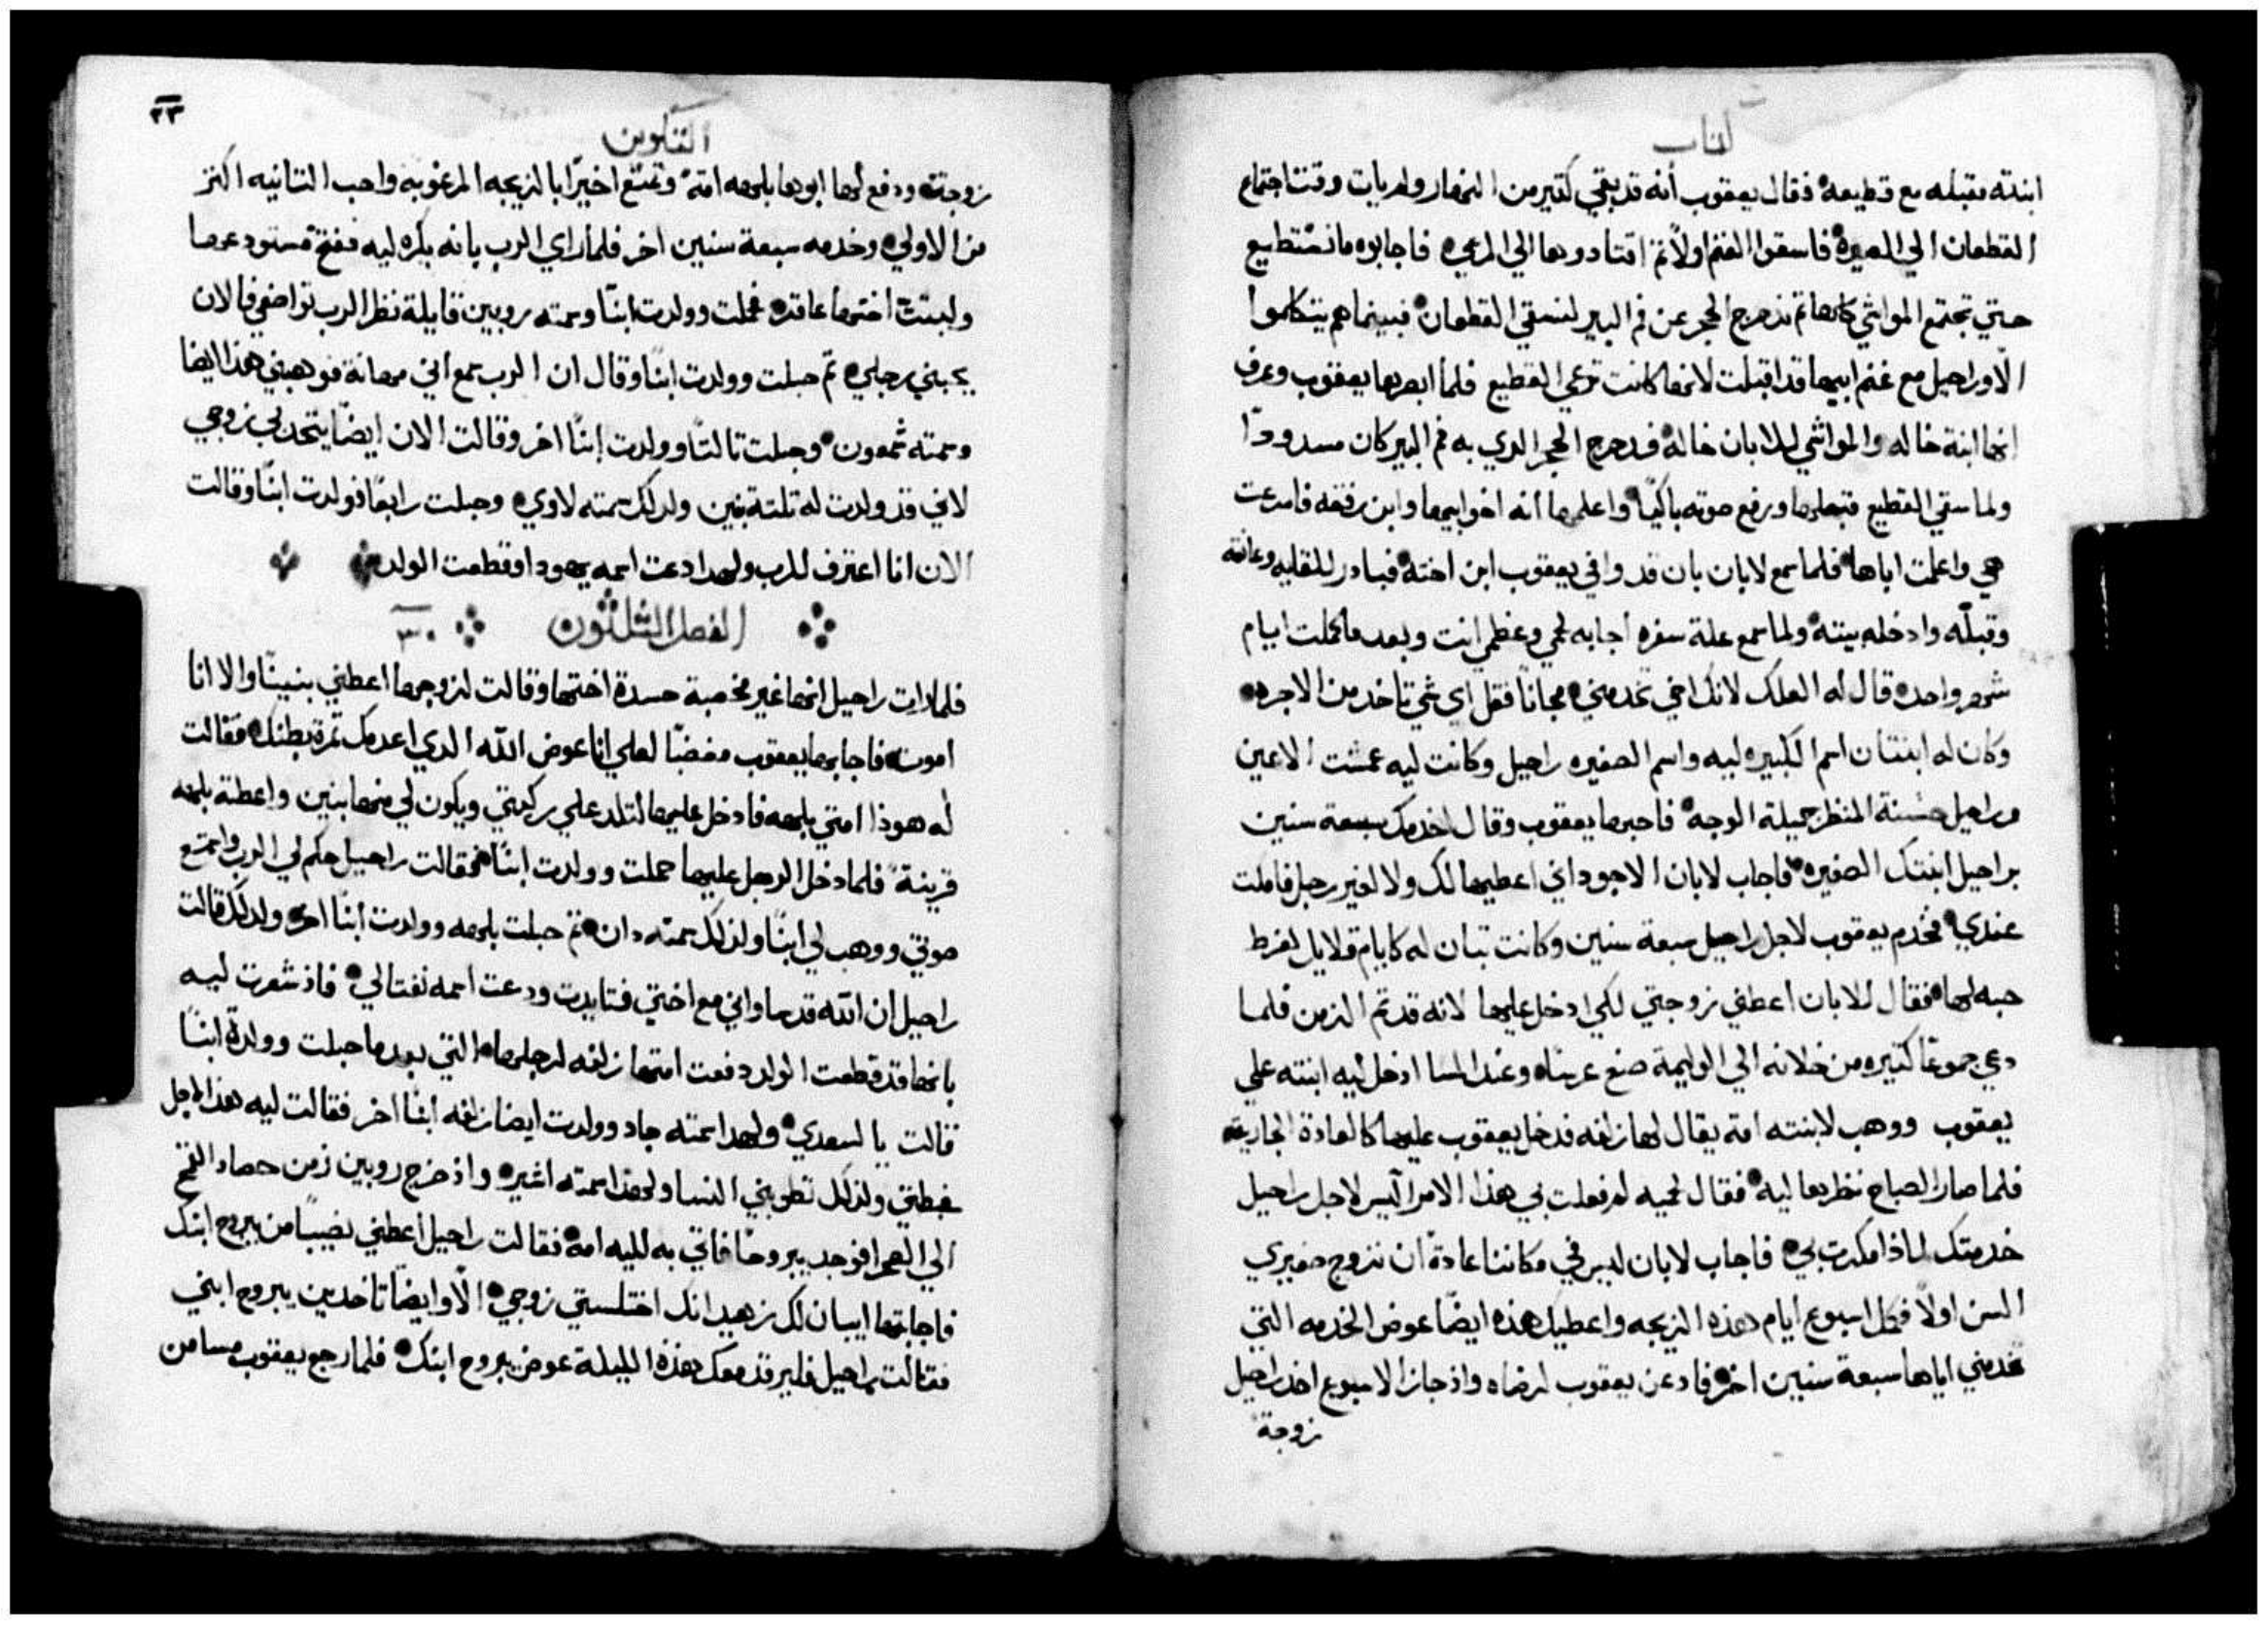 كتاب
ابنته مقبله مع قطيعه فقال يعقوب أنه قد بقي كتير من النهار ولم يات وقت اجتماع
القطعان الي الصيره فاسقوا الغنم اولاً تم اقتادوها الي المرعي فاجابوه ما نستطيع
حتي تجتمع المواشي كلها تم ندحرج الحجر عن فم البير لنسقي القطعان فبينما هم يتكلموا
الا وراحيل مع غنم ابيها قد اقبلت لانها كانت ترعي القطيع فلما ابصرها يعقوب وعرف
انها ابنة خاله والمواشي للابان خاله فدحرج الحجر الدي به فم البير كان مسدوداً
ولما سقي القطيع قبلها ورفع صوته باكياً واعلمها أنه اخو ابيها وابن رفقه فاسرعت
هي واعلمت اباها فلما سمع لابان بان قد وافي يعقوب ابن اخته فبادر للقايه وعانقه
وقبلّه وادخله بيته ولما سمع علة سفره أجابه لحمي وعظمي انت وبعد ما كملت ايام
شهر واحد قال له العلك لانك اخي تخدمني مجاناً فقل اي شي تاخد من الاجره
وكان له ابنتان اسم الكبيره ليه واسم الصغيره راحيل وكانت ليه عمشت الاعين
وراحيل حسنة المنظر جميلة الوجه فاحبها يعقوب وقال اخدمك سبعة سنين
براحيل ابنتك الصغيره فاجاب لابان الاجود اني اعطيها لك ولا لغير رجل فامكت
عندي فخدم يعقوب لاجل راحيل سبعة سنين وكانت تبان له كايام قلايل لفرط
حبه لها فقال للابان أعطني زوجتي لكي ادخل عليها لانه قد تم الزمن فلما
دعي جموعاً كتيره من خلانه الي الوليمة صنع عرساً وعند المسا ادخل ليه ابنته علي
يعقوب ووهب لابنته امة يقال لها زلفه فدخل يعقوب عليها كالعادة الجاريه
فلما صار الصباح نظر بها ليه فقال لحميه لم فعلت بي هذا الامر أليس لاجل راحيل
خدمتك لماذا مكرت بي فاجاب لابان ليس في مكاننا عادةً ان نزوج صغيري
السن اولاً فكمل اسبوع ايام هذه الزيجه واعطيك هذه ايضاً عوض الخدمه التي
تخدمني اياها سبعة سنين اخر فادعن يعقوب لرضاه واذ جاز الاسبوع اخد راحيل
زوجةً
٢٣
التكوين
زوجةً ودفع لها ابوها بلهه امةً وتمتع اخيراً بالزيجه المرغوبه واحب التانيه اكتر
من الاولي وخدمه سبعة سنين اخر فلما راي الرب بانه يكره ليه ففتح مستودعها
ولبتت اختها عاقره فحملت وولدت ابناً وسمته روبين قايلة نظر الرب تواضعي فالان
يحبني رجلي تم حبلت وولدت ابناً وقال ان الرب سمع اني مهانة فوهبني هذا ايضا
وسمته شمعون وحبلت تالتاً وولدت ابناً اخر وقالت الان ايضاً يتحد بي زوجي
لاني قد ولدت له تلتة بنين ولدلك سمته لاوي وحبلت رابعًا فولدت ابناً وقالت
الان انا اعترف للرب ولهدا دعت اسمه يهودا وقطعت الولد
الفصل الثلثون ٣٠
فلما رات راحيل انها غير مخصبة حسدة اختها وقالت لزوجها اعطني بنيناً والا انا
اموت فاجابها يعقوب مغضباً لعلي انا عوض الله الدي اعدمك تمرة بطنك فقالت
له هوذا امتي بلهه فادخل عليها لتلد علي ركبتي ويكون لي منها بنين واعطته بلهه
قرينةً فلما دخل الرجل عليها حملت وولدت ابناً فقالت راحيل حكم لي الرب واستمع
صوتي ووهب لي ابنًا ولذلك سمته دان تم حبلت بلهه وولدت ابنًا اخر ولدلك قالت
راحيل ان الله قد ساواني مع اختي فتايدت ودعت اسمه نفتالي فاذ شعرت ليه
بانها قد قطعت الولد دفعت امتها زلفه لرجلها التي بعد ما حبلت وولدة ابنًا
قالت يا لسعدي ولهدا سمته جاد وولدت ايضا زلفه ابنًا اخر فقالت ليه هذا لاجل
غبطتي ولذلك تطوبني النسا ولهذا سمته اشير واذ خرج روبين زمن حصاد القمح
الي الصحرا فوجد يبروحًا فاتي به لليه امه فقالت راحيل أعطني نصيبًا من يبروح ابنك
فاجابتها ايبان لك زهيد انك اختلستي زوجي الا وايضاً تاخدين يبروح ابني
فقالت راحيل فليرقد معك هذه الليلة عوض يبروح ابنك فلما رجع يعقوب مسا من